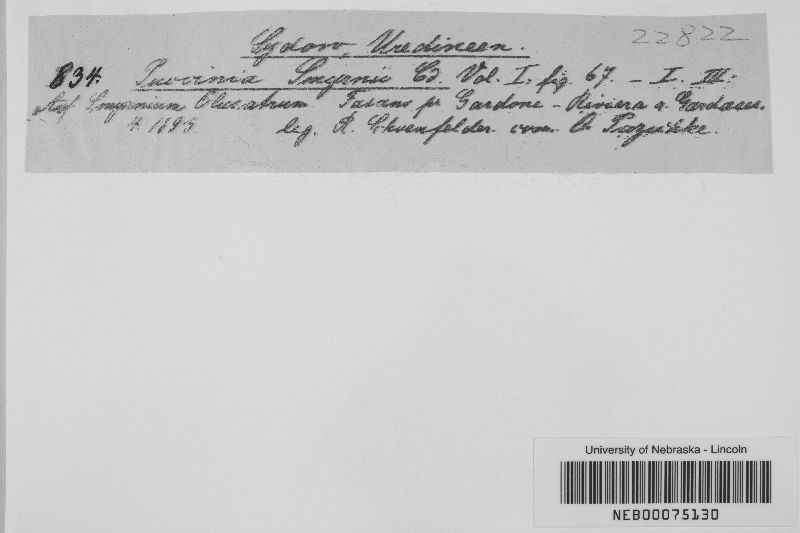 22822
Sydow, Uredineen.
834. Puccinia Smyrnii Cd. Vol. I. fig. 67. – I. III:
Auf Smyrnium Olusatrum Fasano pr Gardone – Riviera a. Gardasee.
4. 1895. leg. R. Schoenfelder. com. O Pazschke.
University of Nebraska - Lincoln
NEB00075130